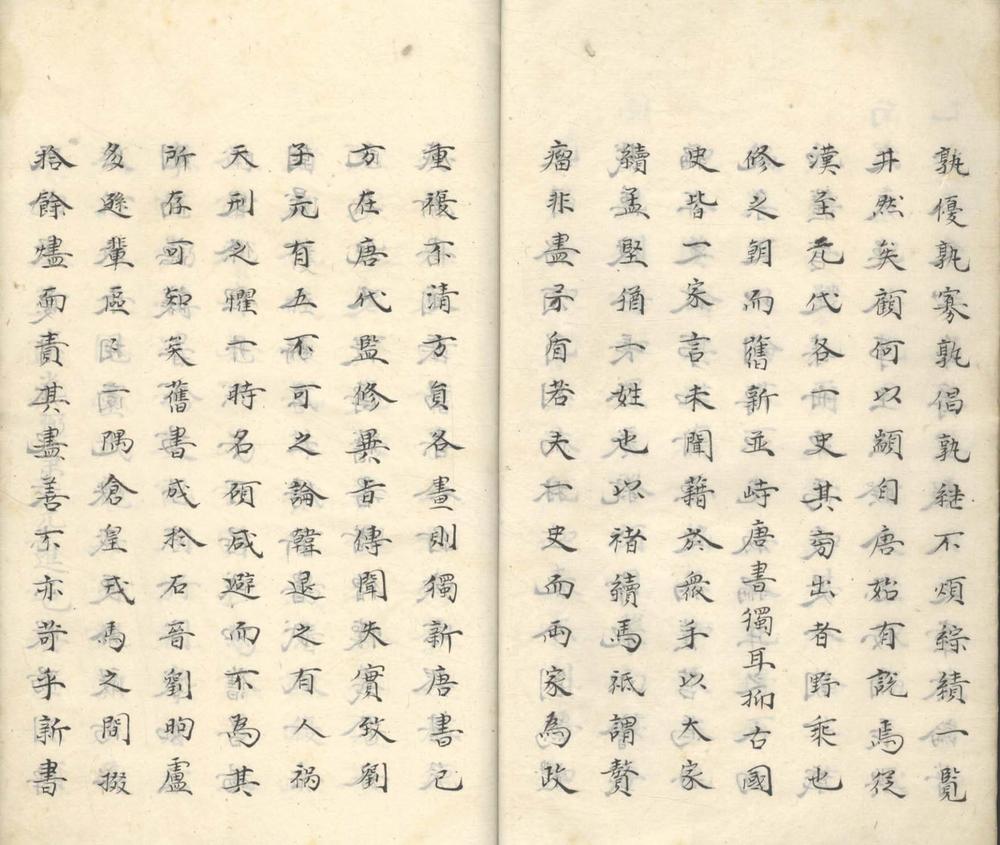 孰優孰寡孰倡孰継不煩綜績一覧
井然矣顧何以顓自唐始有説焉従
漢至元代各一史其旁出者野乗也
修之朝而舊新並峙唐書獨耳抑古國
史皆一家言未聞藉於衆手以大家
續孟堅猶一姓也以禇續馬祗謂贅
瘤非盡矛盾若夫一史而両家為政
重複不清方負各畫則獨新唐書已
方在唐代監修異旨傳聞失實致劉
子元有五不可之論韓退之有人禍
天刑之懼一時名碩咸避而不為其
所存可知矣舊書成於石晉劉昫盧
多遜輩區〻一隅倉皇戎馬之間掇
拾餘燼而責其盡善不亦苛乎新書